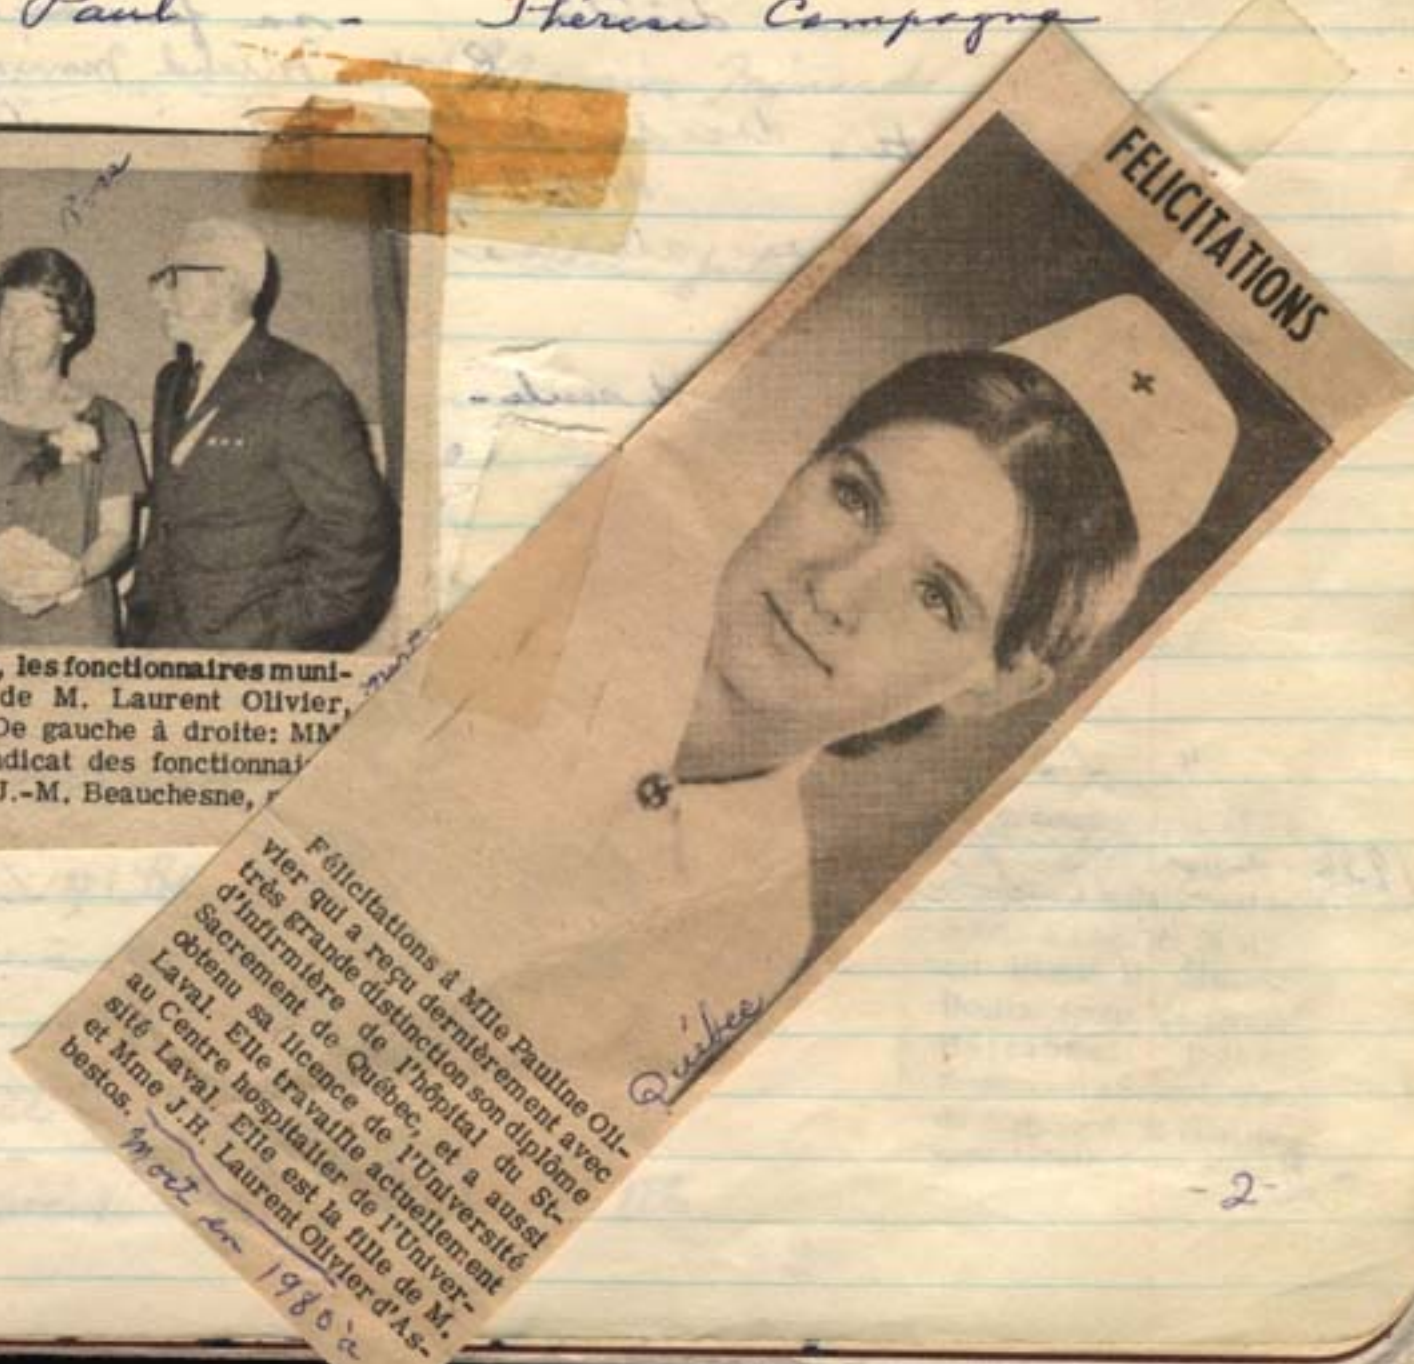 Paul - Thérèse Campagna
Rose
, les fonctionnaires muni-
de M. Laurent Olivier,
De gauche à droite: MM
ndicat des fonctionnai
J.-M. Beauchesne,
FELICITATIONS
Félicitations à Mlle Pauline Oli-
vier qui a reçu dernièrement avec
très grande distinction son diplôme
d'Infirmière de l'hôpital du St-
Sacrement de Québec, et a aussi
obtenu sa licence de l'Université
Laval. Elle travaille actuellement
au Centre hospitalier de l'Univer-
sité Laval. Elle est la fille de M.
et Mme J.H. Laurent Olivier d'As-
bestos.
Québec
mort en 1980 à
- 2 -